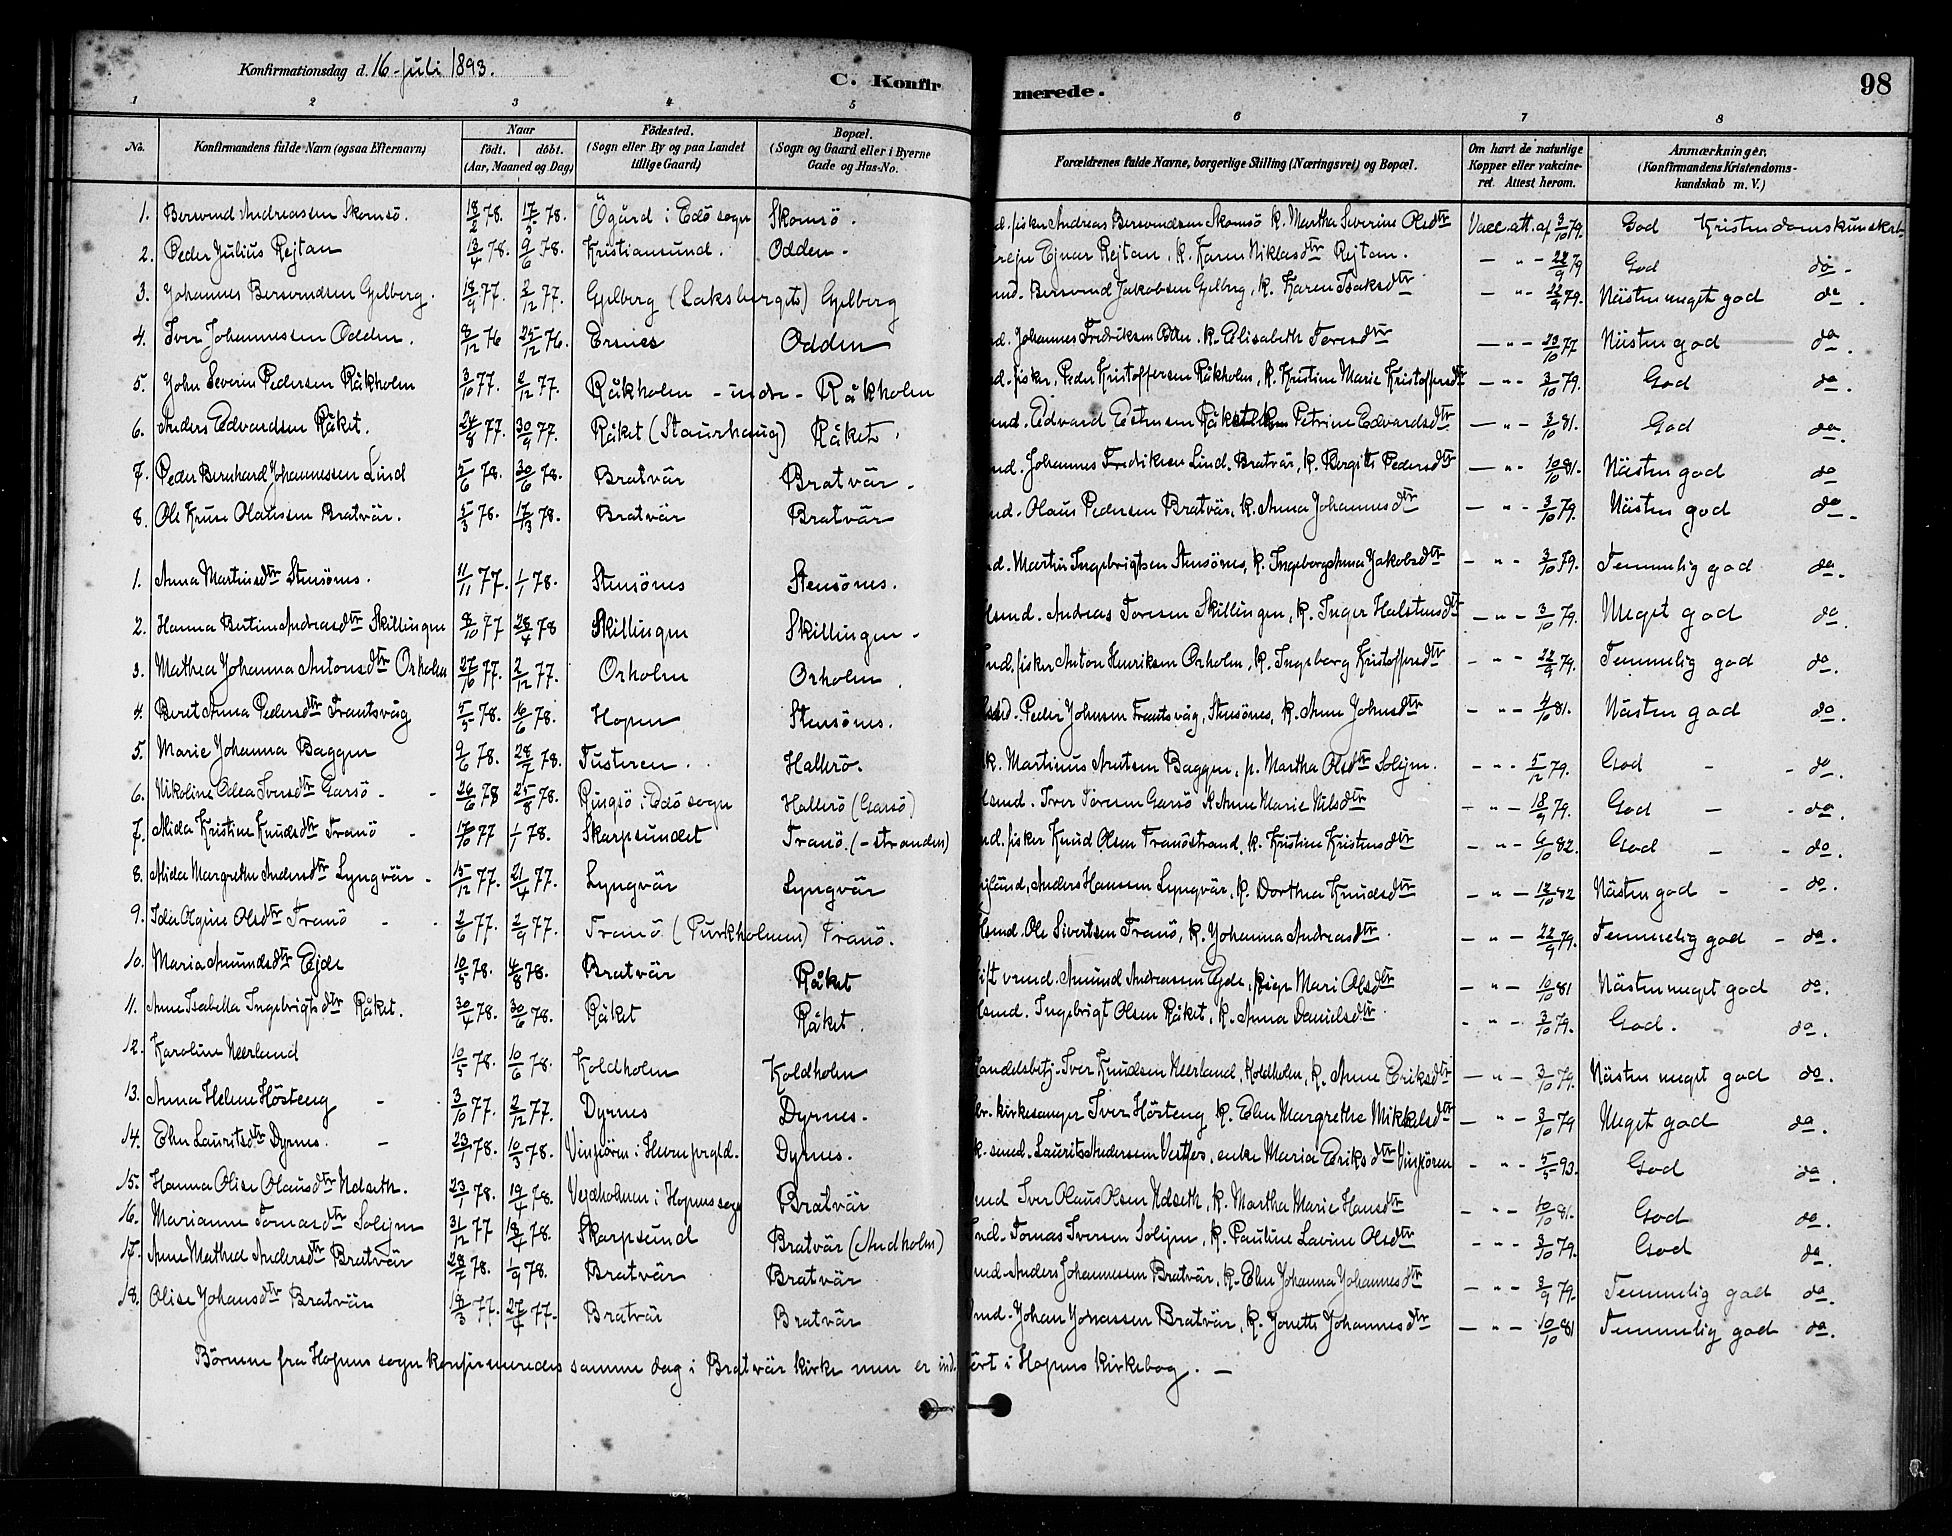 Konfirmationsdag d. 16-juli 1893.
C. Konfirmerede.
98
1 2 3 4 5 6 7 8
No. Konfirmandens fulde Navn (ogsaa Efternavn) Naar födt. döbt. (Aar, Maaned og Dag) Födested. (Sogn eller By og paa Landet tillige Gaard) Bopæl. (Sogn og Gaard eller i Byerne Gade og Hus-No. Forældrenes fulde Navne, borgerlige Stilling (Næringsvei) og Bopæl. Om havt de naturlige Kopper eller vakcineret. Attest herom. Anmærkninger, (Konfirmandens Kristendomskundskab m. V.)
1. Bersvend Andreassen Skomsö. 18/2 78. 17/5 78. Ögård i Edö sogn Skomsö. fisker Andreas Bersvendsen Skomsö k. Martha Severine Olsdtr Vacc. att. af 3/10 79. God Kristendomskundskab
2. Peder Julius Rejtan 13/4 78. 9/6 78. Kristiansund. Odden. Ejnar Rejtan, k. Karen Niklasdtr Rejtan. — " — 22/9 79 God do.
3. Johannes Bersvendsen Gjelberg. 18/9 77. 2/12 77. Gjelberg (Laksberget) Gjelberg Bersvend Jakobsen Gjelberg, k. Karen Isaksdtr — " — 22/9 79. Nästen meget god do.
4. Iver Johannessen Odden. 8/12 76 25/12 76. Ersnes Odden Johannes Fredriksen Odden. k. Elisabeth Toresdtr — " — 23/10 77 Nästen god do.
5. John Severin Pedersen Råkholm 3/10 77. 2/12 77. Råkholm - indre - Råkholm fisker, Peder Kristoffersen Råkholm, k. Kristine Marie Kristoffersdtr — " — 3/10 79. God do.
6. Anders Edvardsen Råket. 24/8 77. 30/9 77. Råket (Staurhaug) Råket. Edvard Estensen Råket k. Petrine Edvardsdtr — " — 3/10 81. God do.
7. Peder Bernhard Johannessen Lund 5/6 78. 30/6 78. Bratvär Bratvär. Johannes Fredriksen Lund. Bratvär, k. Bergitte Pedersdtr — " — 10/10 81. Nästen god do
8. Ole Kruse Olaussen Bratvär. 5/3 78. 17/3 78. Bratvär Bratvär Olaus Pedersen Bratvär, k. Anna Johannesdtr — " — 3/10 79. Nästen god do.
1. Anna Martinsdtr Stensönes. 11/11 77. 1/1 78. Stensönes Stensönes. Martin Ingebrigtsen Stensönes, k. Ingeborg Anna Jakobsdtr — " — 3/10 79. Temmelig god do.
2. Hanna Bertine Andreasdtr Skillingen 8/10 77 28/4 78 Skillingen Skillingen. Andreas Toresen Skillingen, k. Inger Halstensdtr — " — 3/10 79. Meget god do.
3. Mathea Johanna Antonsdtr Orholm 27/10 77. 2/12 77. Orholm Orholm. fisker Anton Henriksen Orholm, k. Ingeborg Kristoffersdtr — " — 22/9 79. Temmelig god do.
4. Beret Anna Pedersdtr Frantsvåg 5/5 78. 16/6 78. Hopen Stensönes. Peder Johnsen Frantsvåg, Stensönes, k. Anne Johnsdtr — " — 4/10 81. Nästen god do.
5. Marie Johanna Baggen 9/6 78. 28/7 78. Tusteren. Hallerö. Martinus Arntsen Baggen, p. Martha Olsdtr Soligm. — " — 5/12 79. God - do.
6. Nikoline Odea Iversdtr Garsö 26/6 78 25/8 78. Ringsö i Edö sogn Hallerö (Garsö) Iver Toresen Garsö k. Anne Marie Nilsdtr — " — 18/9 79. God - do.
7. Alida Kristine Knudsdtr Tranö 17/10 77 1/1 78. Skarpsundet Tranö (-stranden) fisker Knud Olsen Tranöstrand, k. Kristine Kristensdtr — " — 6/10 82. God - do.
8. Alida Margrethe Andersdtr Lyngvär. 15/12 77. 21/4 77. Lyngvär Lyngvär Anders Hansen Lyngvär, k. Dorthea Knudsdtr — " — 12/10 82 Nästen god - do.
9. Ida Olgine Olsdtr Tranö 2/6 77. 2/9 77. Tranö (Purkholmen) Tranö. Ole Sivertsen Tranö, k. Johanna Andreasdtr — " — 22/9 79. Temmelig god - do.
10. Maria Amundsdtr Ejde 10/5 78. 4/8 78. Bratvär Råket Amund Andreassen Ejde, pige Mari Olsdtr — " — 10/10 81 Nästen meget god do.
11. Anne Isabella Ingebrigtsdtr Råket. 30/4 78. 30/6 78. Råket Råket. Ingebrigt Olsen Råket, k. Anna Danielsdtr — " — 3/10 79. God. do.
12. Karoline Neerland 10/5 78. 10/6 78. Koldholm Koldholm Handelsbetj. Iver Knudsen Neerland, Koldholm, k. Anne Eriksdtr — " — 3/10 79. Nästen meget god do.
13. Anna Helene Hösteng 3/10 77. 2/12 77. Dyrnes Dyrnes. kirkesanger Iver Hösteng, k. Elen Margrethe Mikkelsdtr — " — 3/10 79 Meget god do.
14. Elen Lauritsdtr Dyrnes. 23/1 78. 10/3 78. Vinjeören i Hevne prgld. Dyrnes. Laurits Andersen Vestfos, enke Maria Eriksdtr Vinjeören — " — 5/5 93. God do.
15. Hanna Olise Olausdtr Ndseth. 23/1 78. 19/4 78. Vejdholmen i Hopens sogn Bratvär Iver Olaus Olsen Ndseth, k. Martha Marie Hansdtr — " — 10/10 81. God do.
16. Marianne Tomasdtr Soligm 31/12 77 18/4 78. Skarpsund Bratvär (Andholm) Tomas Iversen Soligm, k. Pauline Lavine Olsdtr — " — 3/10 79. God do.
17. Anne Mathea Andersdtr Bratvär 28/7 78. 1/9 78. Bratvär Bratvär Anders Johannesen Bratvär, k. Elen Johanna Johannesdtr — " — 3/9 79. Temmelig god do.
18. Olise Johansdtr Bratvär 18/3 77. 27/4 77. Bratvär Bratvär Johan Jonassen Bratvär, k. Jonette Johannesdtr — " — 10/10 81 Temmelig god do.
Börnene fra Hopens sogn konfirmeredes samme dag i Bratvär kirke men er indfört i Hopens kirkebog. —